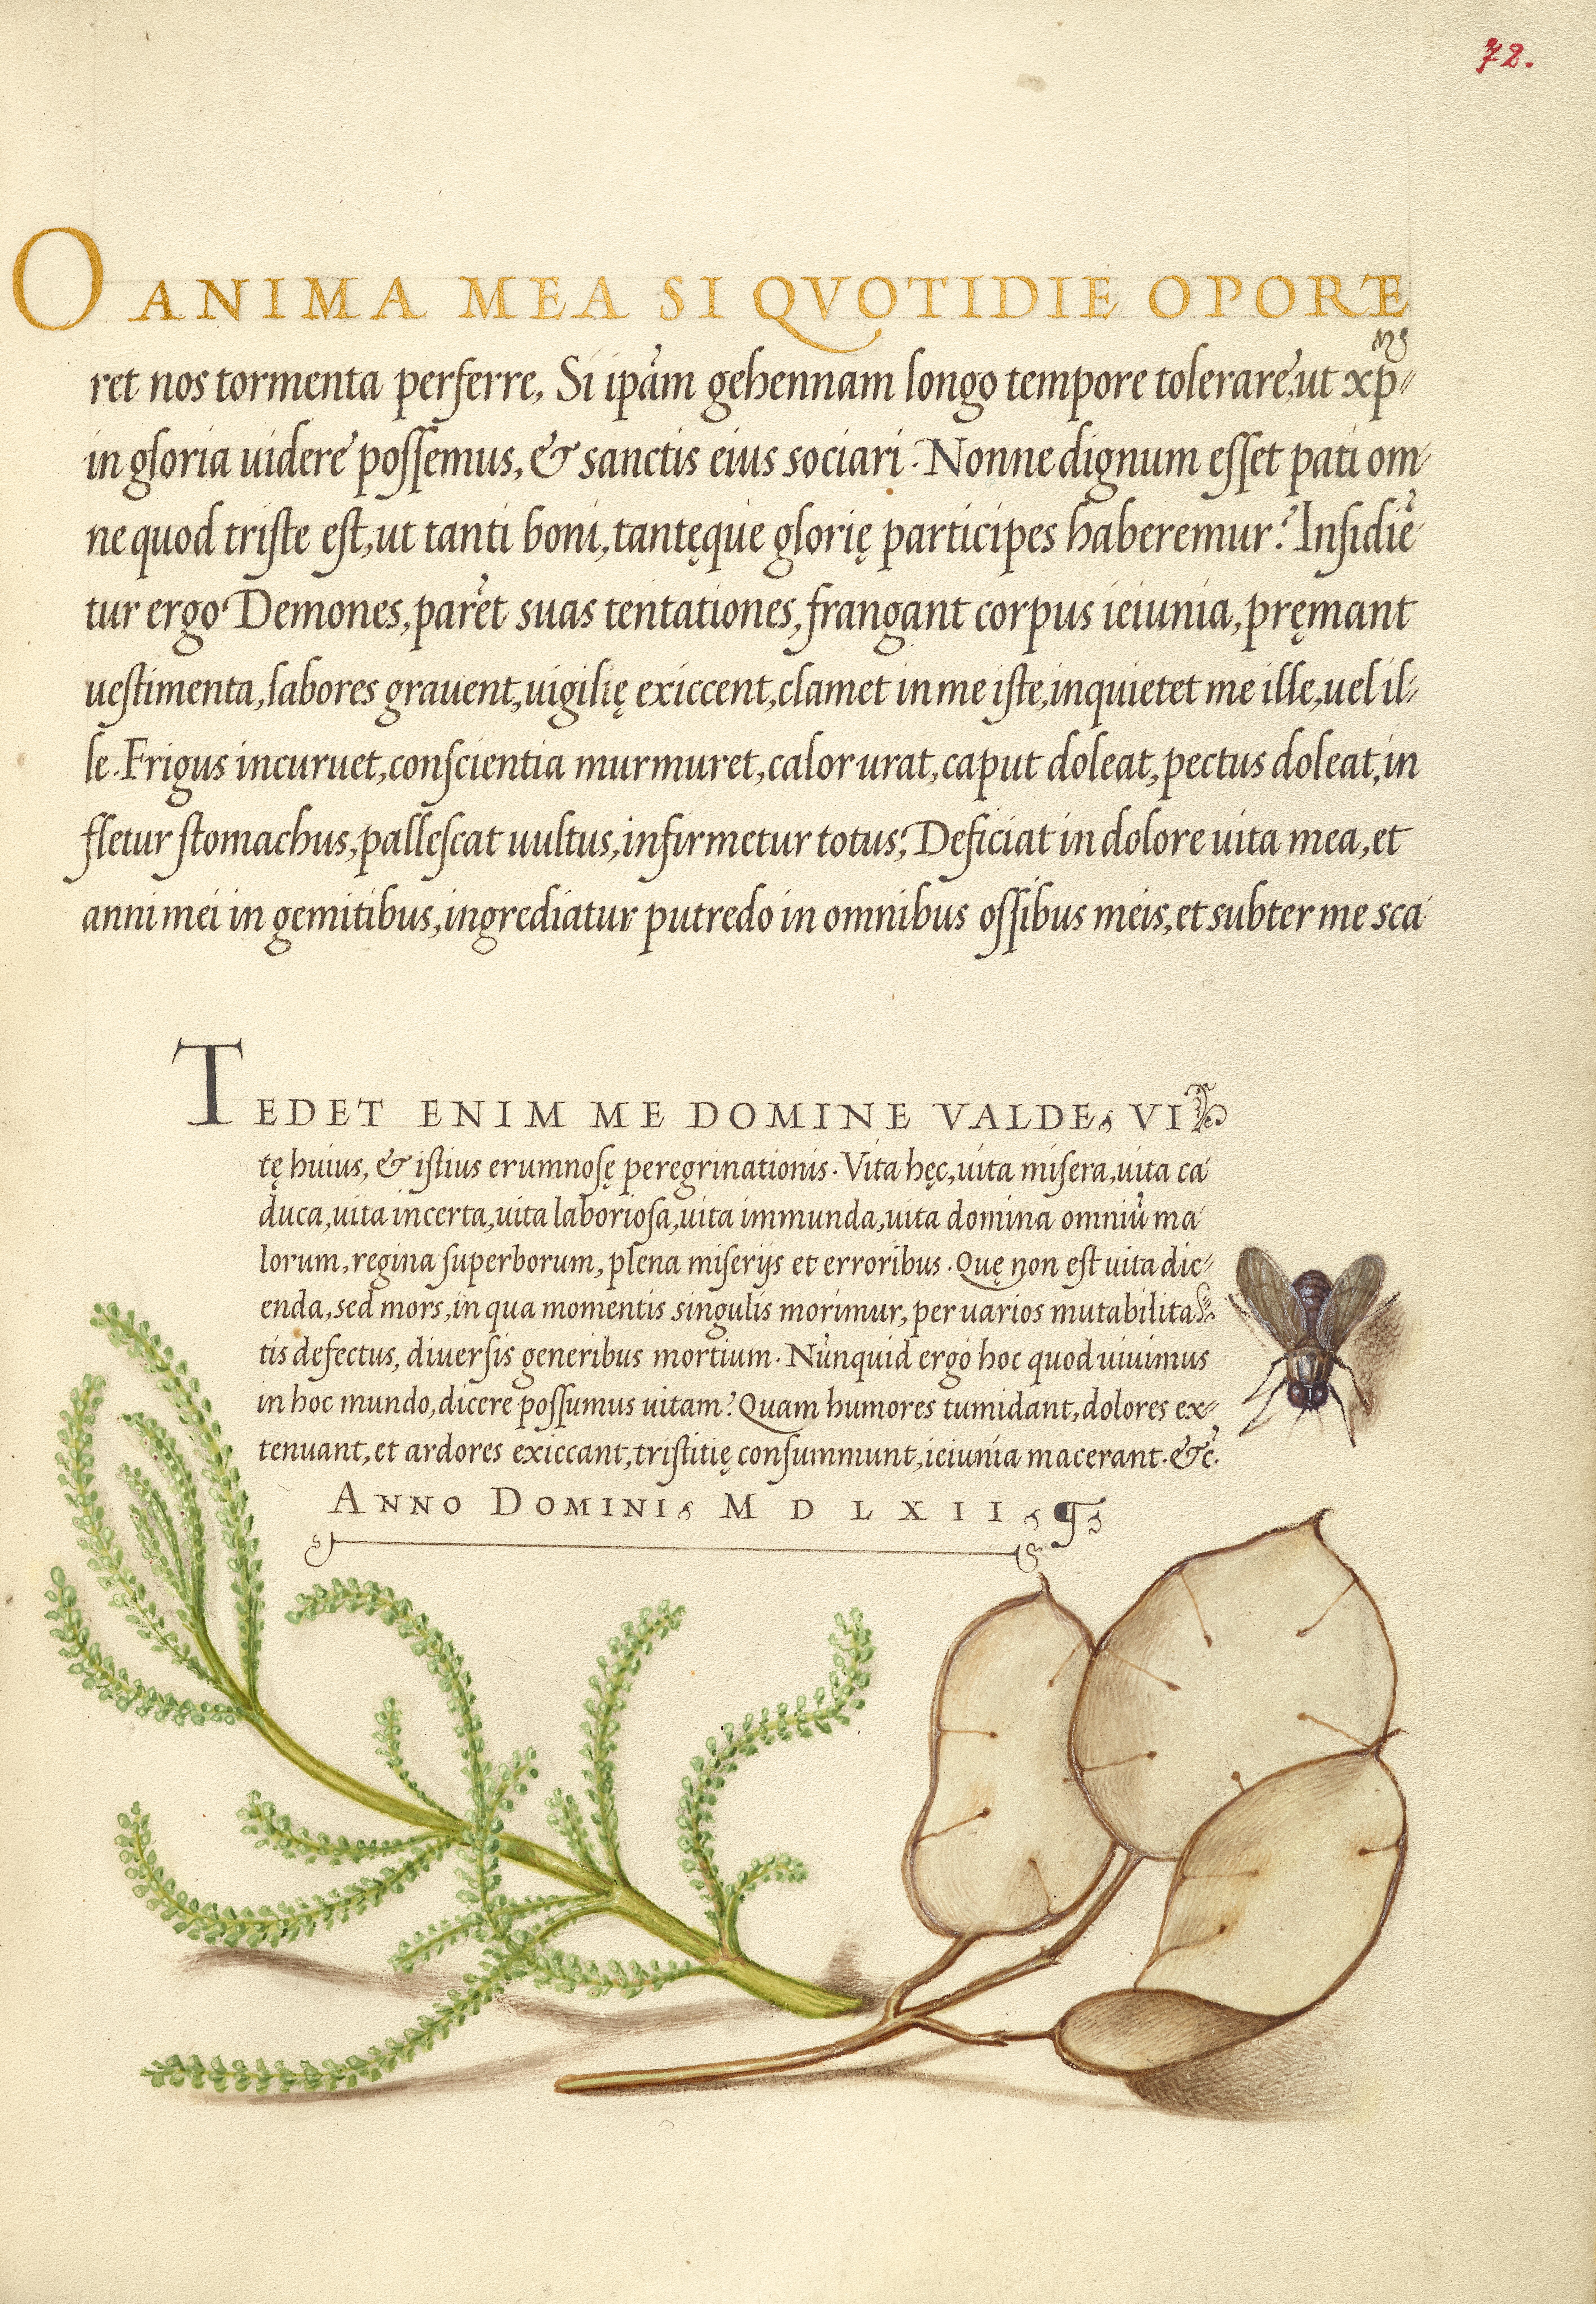 72.
O ANIMA MEA SI QVOTIDIE OPORE
ret nos tormenta perferre, Si ipãm gehennam longo tempore tolerare, ut xp̃m
in gloria uidere poſſemus, & sanctis eius sociari. Nonne dignum eſſet pati om-
ne quod triſte eſt, ut tanti boni, tantęque glorię participes haberemur? Inſidiẽ
tur ergo Demones, parẽt suas tentationes, frangant corpus ieiunia, pręmant
ueſtimenta, labores grauent, uigilię exiccent, clamet in me iſte, inquietet me ille, uel il-
le. Frigus incuruet, conſcientia murmuret, calor urat, caput doleat, pectus doleat, in
fletur ſtomachus, palleſcat uultus, infirmetur totus; Deficiat in dolore uita mea, et
anni mei in gemitibus, ingrediatur putredo in omnibus oſſibus meis, et subter me sca
TEDET ENIM ME DOMINE VALDE, VI
tę huius, & iſtius erumnoſę peregrinationis. Vita hęc, uita miſera, uita ca
duca, uita incerta, uita laborioſa, uita immunda, uita domina omniũ ma
lorum, regina ſuperborum, plena miſerijs et erroribus. Quę non eſt uita dic-
enda, sed mors, in qua momentis singulis morimur, per uarios mutabilita
tis defectus, diuerſis generibus mortium. Nũnquid ergo hoc quod uiuimus
in hoc mundo, dicere poſſumus uitam? Quam humores tumidant, dolores ex-
tenuant, et ardores exiccant, triſtitię conſummunt, ieiunia macerant. &c̃.
ANNO DOMINI, M D L X I I,